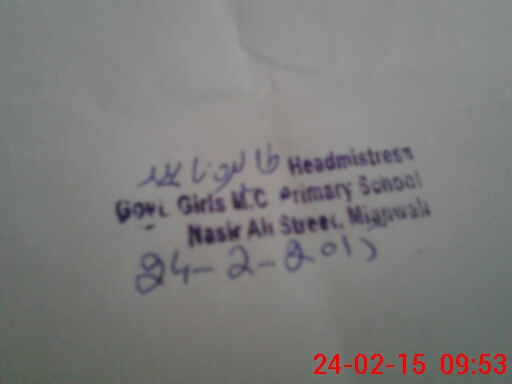 Headmistress
Govt. Girls M.C Primary School
Nasir Ali Street, Mianwali
24-2-2015
24-02-15 09:53